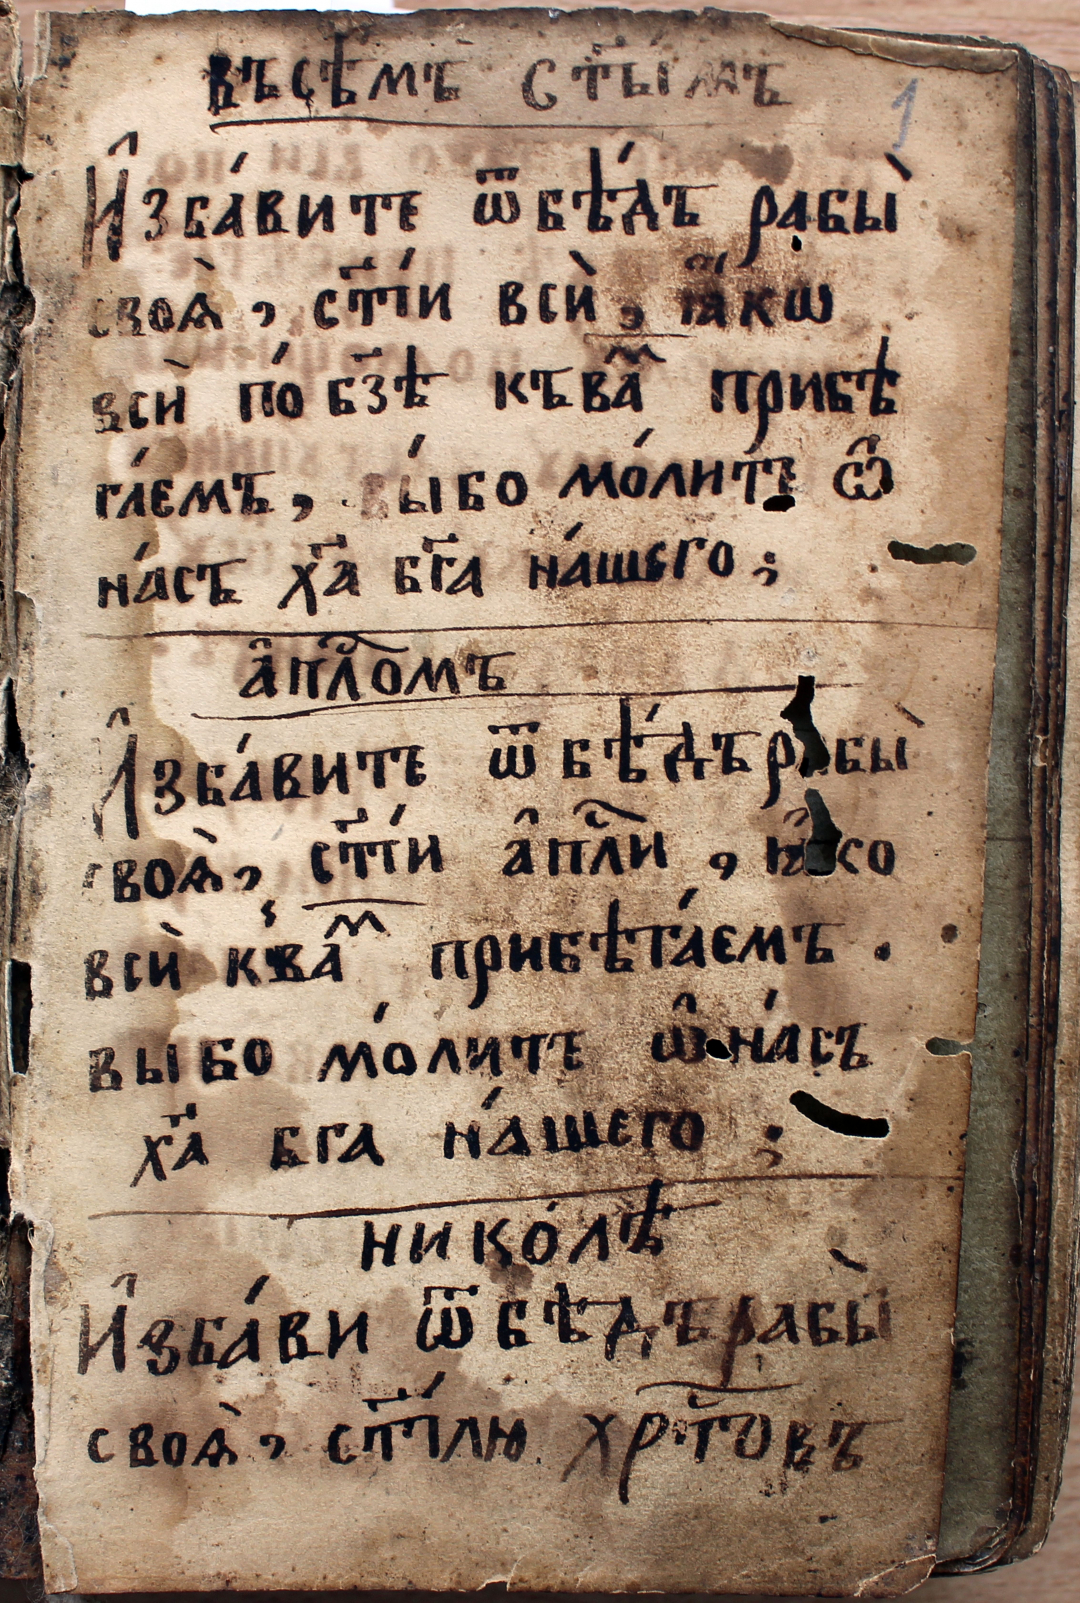 въсѣмъ ст҃ымъ
1
И҆зба́вите ѿбѣ́дъ рабы̀
своѧ̀, ст҃і́и всѝ, ꙗ҆́кѡ
всѝ по́ бз҃ѣ къва́ⷨ прибѣ
га́емъ, вы́бо мо́лите ѡ҆
на́съ хр҃а бг҃а на́шего;
а҆пⷭ҇ломъ
И҆зба́вите ѿбѣ́дъ рабы̀
своѧ̀, ст҃і́и а҆пⷭ҇ли, ꙗ҆́ко
всѝ к̾ва́ⷨ прибѣга́емъ.
выбо мо́лите ѡ҆на́съ
х҃а бга на́шего;
нико́лѣ
И҆зба́ви ѿбѣдърабы̀
своѧ̀, ст҃і́лю хрⷭ҇то́въ